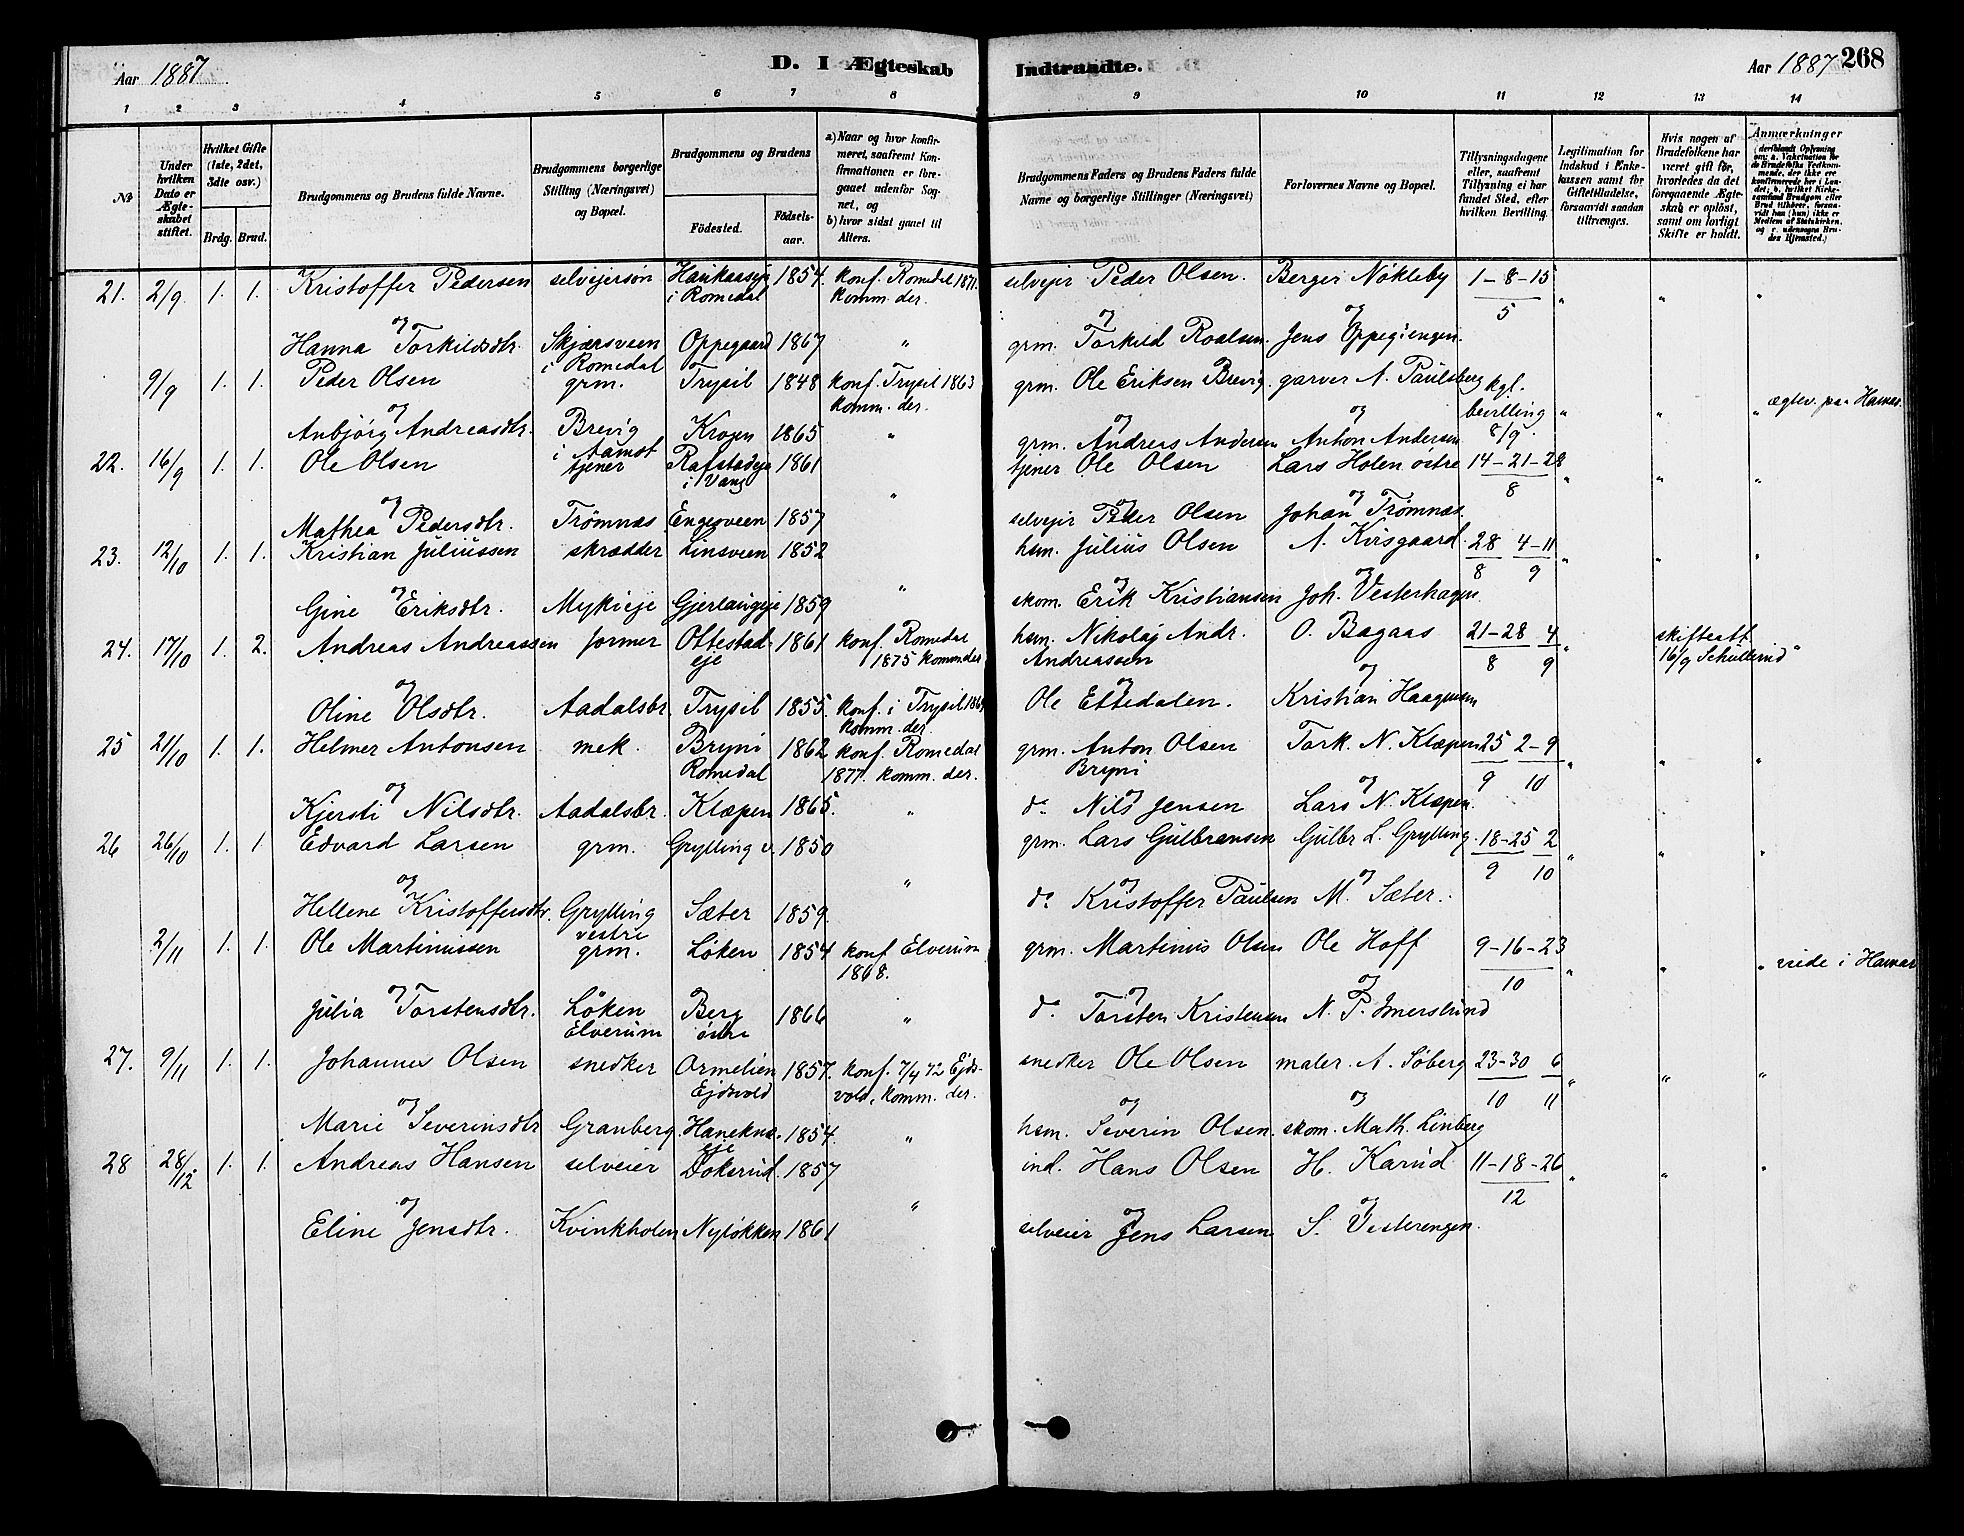 Aar 1887 D. I Ægteskab Indtraadte. Aar 1887 268
1 2 3 4 5 6 7 8 9 10 11 12 13 14
No
Under hvilken Dato er Ægteskabet stiftet.
Hvilket Gifte (1ste, 2det, 3die osv.)
Brdg. Brud.
Brudgommens og Brudens fulde Navne.
Brudgommens borgerlige Stilling (Næringsvei) og Bopæl.
Brudgommens og Brudens
Fødested. Fødselsaar.
a) Naar og hvor konfirmeret, saafremt Konfirmationen er foregaaet udenfor Sognet, og
b) hvor sidst gaaet til Alters.
Brudgommens Faders og Brudens Faders fulde Navne og borgerlige Stillinger (Næringsvei)
Forlovernes Navne og Bopæl.
Tillysningsdagene eller, saafremt Tillysning ei har fundet Sted, efter hvilken Bevilling.
Legitimation for Indskud i Enkekassen samt for Giftetilladelse, forsaavidt saadan tiltrænges.
Hvis nogen af Brudefolkene har været gift før, hvorledes da det foregaaende Ægteskab er opløst, samt om lovligt Skifte er holdt.
Anmærkninger
21. 2/9 1. 1. Kristoffer Pedersen selveiersøn i Romedal 1854. konf. Romedal 1871. komm. der. selveier Peder Olsen. Berger Nøkleby 1-8-15 / 5 " " "
og og
Hanna Torkildsdtr. Skjærsveen i Romedal Oppegaard 1867 " grm. Torkild Roalsen. Jens Oppegiengen.
9/9 1. 1. Peder Olsen grm. Trysil 1848 konf. Trysil 1863 komm. der. grm. Ole Eriksen Brevig. garver A. Paulsberg kgl. bevilling 8/9. " " " ægtev. paa Hamar.
og og
Anbjørg Andreasdtr. Brevig i Aamot Krogen 1865 " grm. Andreas Andersen Anton Andersen
22. 16/9 1. 1. Ole Olsen tjener i Vang 1861 tjener Ole Olsen Lars Holen østre 14-21-28 / 8 " " "
og " og og
Mathea Pedersdtr. Trømnæs Engesveen 1857 selveier Peder Olsen Johan Trømnæs.
23. 12/10 1. 1. Kristian Juliussen skrædder Linsveen 1852 hsm. Julius Olsen A. Kvisgaard. 28/8 4-11/9 " " "
og " og og
Gine Eriksdtr. Mykleeje Gjerlaugeje 1859 skom. Erik Kristiansen Joh. Vesterhagen
24. 17/10 1. 2. Andreas Andreassen former Ottestadeje 1861 konf. Romedal 1875 komm der hsm. Nikolaj Andr. Andreassen O. Bagaas 21-28/8 4/9 " skifteatt. 16/9 "
og og og
Oline Olsdtr. Aadalsbr. Trysil 1855. konf. i Trysil komm. der. Ole Ettedalen. Kristian Haagensen
25 21/10 1. 1. Helmer Antonsen mek. Bryni Romedal 1862 konf. Romedal 1877. komm. der. grm. Anton Olsen Bryni Tark. N. Klæpen 25/9 2-9/10 " " "
og og
Kjersti Nilsdtr. Aadalsbr. Klæpen 1865. " do Nils Jensen Lars N. Klæpen.
26 26/10 1. 1 Edvard Larsen grm. Grylling v. 1850 grm. Lars Gulbransen Gulbr L. Grylling. 18-25/9 2/10 " " "
og " og og
Hellene Kristoffersdtr. Grylling vestre Sæter 1859. do Kristoffer Paulsen M. Sæter.
2/11 1. 1. Ole Martinussen grm. Løken 1854 konf. Elverum 1868. grm. Martinus Olsen Ole Hoff 9-16-23 / 10 " " " viede i Hamar
og og og
Julia Torstensdtr. Løken Elverum Berg østre 1866 " do Torsten Kristensen N. P. Imerslund
27. 9/11 1. 1. Johannes Olsen snedker Ormelien Ejdsvold 1857. konf. 7/4 72 Ejdsvold, komm. der. snedker Ole Olsen maler. A. Søberg 23-30/10 6/11 " " "
og og og
Marie Severinsdtr Granberg. Hanekneeje 1854. " hsm. Severin Olsen. skom. Math. Linberg
28 28/12 1. 1. Andreas Hansen selveier Dokerud. 1857 ind. Hans Olsen H. Karud. 11-18-26 / 12 " " "
og " og og
Eline Jensdtr. Kvinkholen Nyløkken 1861 selveier Jens Larsen S. Vesterengen.